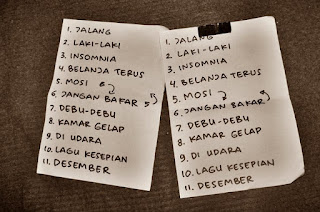 1. JALANG
2. LAKI-LAKI
3. INSOMNIA
4. BELANJA TERUS
5. MOSI 6
6. JANGAN BAKAR 5
7. DEBU-DEBU
8. KAMAR GELAP
9. DI UDARA
10. LAGU KESEPIAN
11. DESEMBER
1. JALANG
2. LAKI-LAKI
3. INSOMNIA
4. BELANJA TERUS
5. MOSI
6. JANGAN BAKAR
7. DEBU-DEBU
8. KAMAR GELAP
9. DI UDARA
10. LAGU KESEPIAN
11. DESEMBER